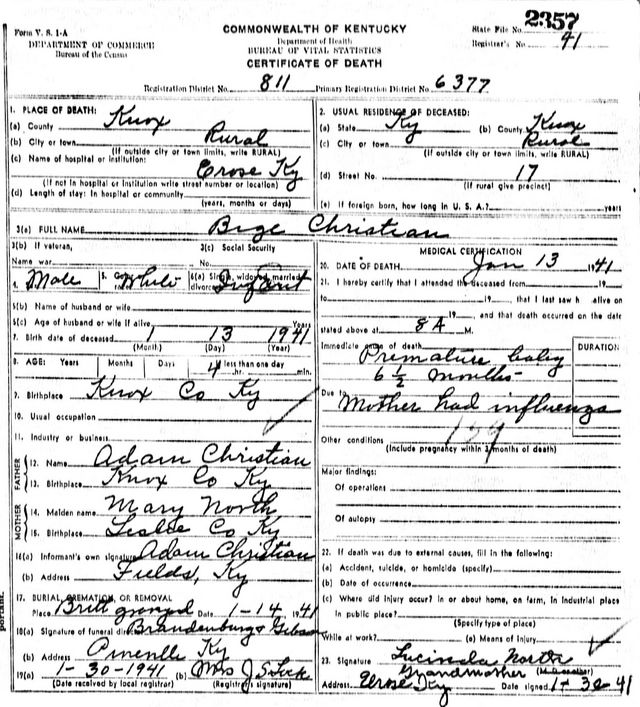 2357
Form V. S. 1-A
DEPARTMENT OF COMMERCE
Bureau of the Census
COMMONWEALTH OF KENTUCKY
Department of Health
BUREAU OF VITAL STATISTICS
CERTIFICATE OF DEATH
State File No.
Registrar's No. 41
Registration District No. 811 Primary Registration District No. 6377
1. PLACE OF DEATH:
(a) County Knox
(b) City or town Rural
(If outside city or town limits, write RURAL)
(c) Name of hospital or institution:
Erose Ky
(If not in hospital or institution write street number or location)
(d) Length of stay: In hospital or community
(years, months or days)
2. USUAL RESIDENCE OF DECEASED:
(a) State Ky (b) County Knox
(c) City or town Rural
(If outside city or town limits, write RURAL)
(d) Street No. 17
(If rural give precinct)
(e) If foreign born, how long in U. S. A.? years
3(a) FULL NAME Bige Christian
3(b) If veteran,
Name war
3(c) Social Security
No.
4. Male 5. White 6(a) Single, widowed, married, divorced Infant
6(b) Name of husband or wife
6(c) Age of husband or wife if alive Years
7. Birth date of deceased 1 13 1941
(Month) (Day) (Year)
8. AGE: Years Months Days If less than one day
4 hr. min.
9. Birthplace Knox Co Ky
10. Usual occupation
11. Industry or business
FATHER
12. Name Adam Christian
13. Birthplace Knox Co Ky
MOTHER
14. Maiden name Mary North
15. Birthplace Leslie Co Ky
16(a) Informant's own signature Adam Christian
(b) Address Fields, Ky
17. BURIAL, CREMATION, OR REMOVAL
Place Britt Date 1-14 1941
18(a) Signature of funeral director Brandenburg & Gibson
(b) Address Ky
19(a) 1-30-1941 (b) Mrs J S Lock
(Date received by local registrar) (Registrar's signature)
MEDICAL CERTIFICATION
20. DATE OF DEATH Jan 13 1941
21. I hereby certify that I attended the deceased from 19
to 19 , that I last saw h alive on
19 , and that death occurred on the date
stated above at 8 A M.
Immediate cause of death DURATION
Premature baby
6 1/2 months
Due to Mother had influenza
159
Other conditions
(Include pregnancy within 3 months of death)
Major findings:
Of operations
Of autopsy
22. If death was due to external causes, fill in the following:
(a) Accident, suicide, or homicide (specify)
(b) Date of occurrence
(c) Where did injury occur? In or about home, on farm, in industrial place
In public place?
(Specify type of place)
While at work? (e) Means of Injury
23. Signature Lucinda North
Grandmother
Address Erose Ky Date signed 1-30-41
portant.